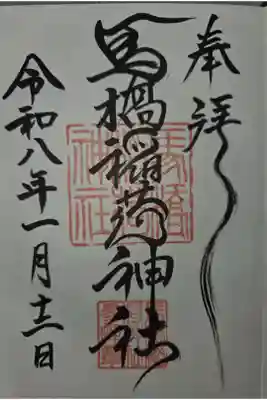 奉拝
馬橋稲荷神社
令和八年一月十二日
馬橋
神社